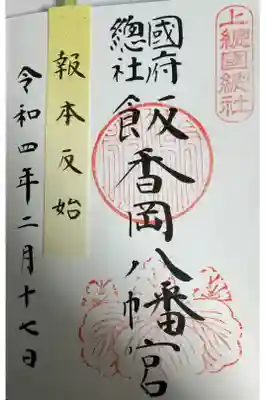 上總國總社
國府
總社
飯香岡八幡宮
報本反始
令和四年二月十七日